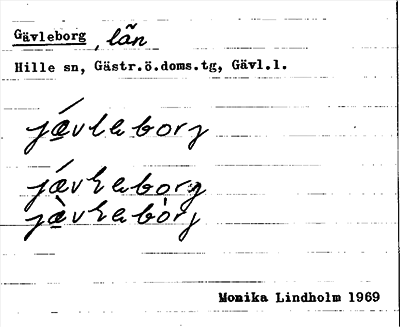 Gävleborg, län
Hille sn, Gästr.ö.doms.tg, Gävl.l.
jǽvleborj
jǽvleborg
jæ̀vlebòrj
Monika Lindholm 1969